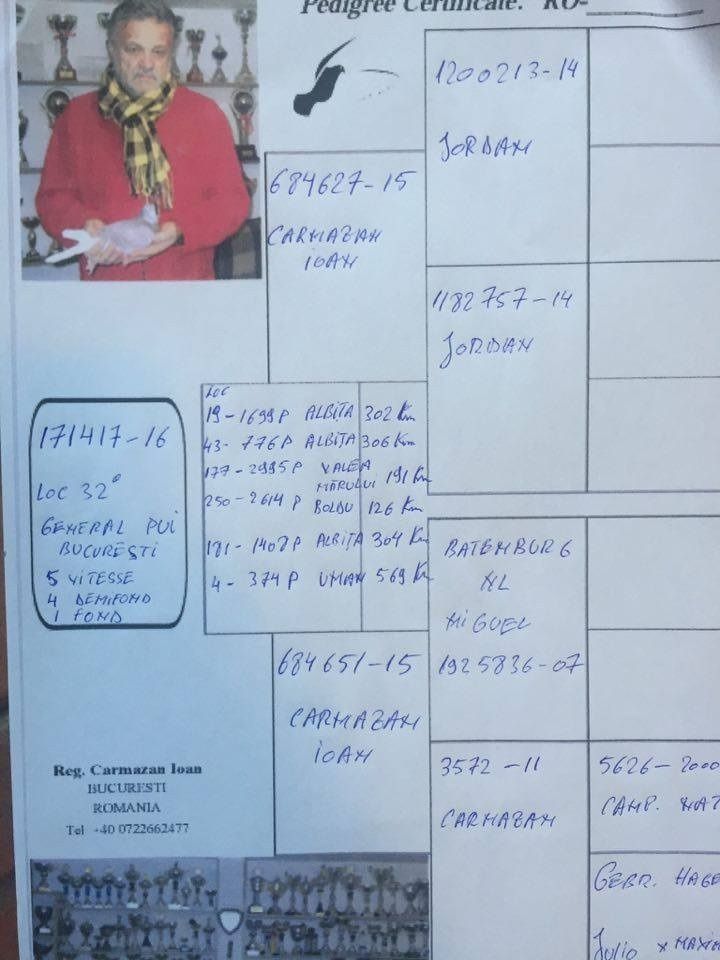 Pedigree Certificate: RO-
1200213-14
JORDAN
684627-15
CARMAZAN
IOAN
1182757-14
JORDAN
171417-16
LOC 32°
GENERAL PUI
BUCUREȘTI
5 VITESSE
4 DEMIFOND
1 FOND
LOC
19-1699P ALBIȚA 302 Km
43- 776P ALBIȚA 306 Km
177-2995P VALEA
MĂRULUI 191 Km
250-2614P BOLDU 126 Km
181-1407P ALBIȚA 304 Km
4- 374P UMAN 569 Km
BATENBURG
NL
MIGUEL
1925836-07
684651-15
CARMAZAN
IOAN
3572-11
CARMAZAN
5626-2000
CAMP. NAT
GEBR. HAGE
Julio x MAXIM
Reg. Carmazan Ioan
BUCURESTI
ROMANIA
Tel +40 0722662477